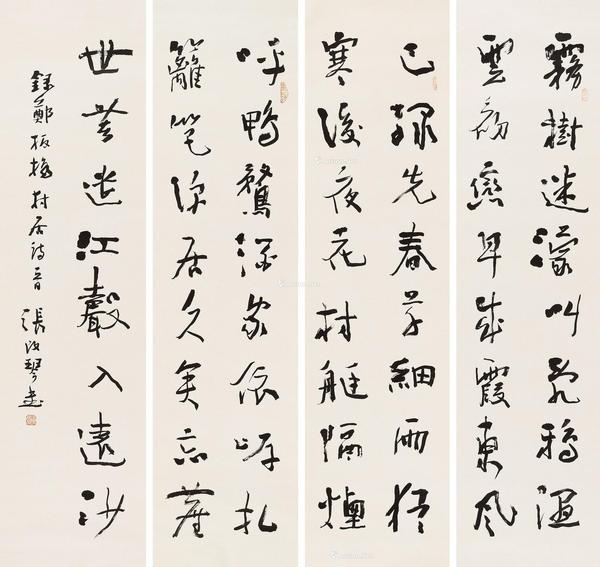 霧樹迷濛叫亂鴉濕
雲初變早成霞東風
已綠先春草細雨猶
寒後夜花村艇隔煙
呼鴨鶩酒家依岸扎
籬笆深居久矣忘塵
世莫遣江聲入遠沙
錄鄭板橋村居詩一首 張改琴書